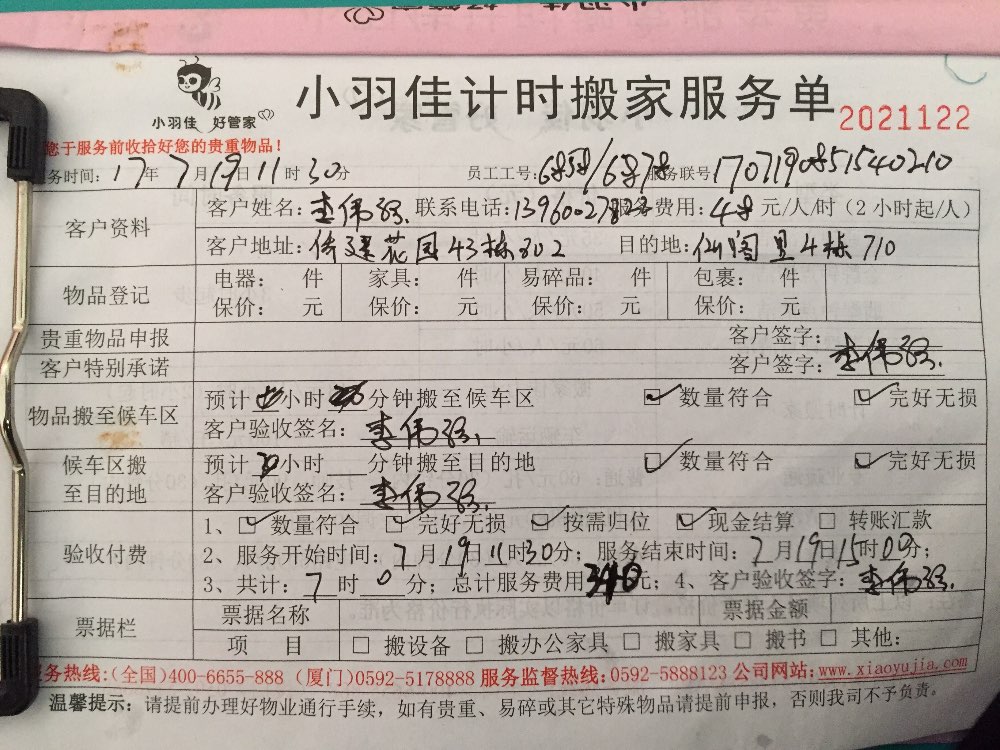 小羽佳 好管家
小羽佳计时搬家服务单
2021122
您于服务前收拾好您的贵重物品！
务时间：17年7月19日11时30分 员工工号： 服务联号
客户资料
客户姓名：李伟强 联系电话： 服务费用： 元/人/时（2小时起/人）
客户地址：倚建花园43栋802 目的地：仙阁里4栋710
物品登记
电器： 件 家具： 件 易碎品： 件 包裹： 件
保价： 元 保价： 元 保价： 元 保价： 元
贵重物品申报 客户签字：李伟强
客户特别承诺 客户签字：
物品搬至候车区
预计 小时 分钟搬至候车区 数量符合 完好无损
客户验收签名：李伟强
候车区搬至目的地
预计 小时 分钟搬至目的地 数量符合 完好无损
客户验收签名：李伟强
验收付费
1、 数量符合 完好无损 按需归位 现金结算 转账汇款
2、服务开始时间：7月19日11时30分；服务结束时间：7月19日15时00分；
3、共计：7时0分；总计服务费用 元；4、客户验收签字：李伟强
票据栏
票据名称 票据金额
项 目 搬设备 搬办公家具 搬家具 搬书 其他：
务热线：(全国)400-6655-888 (厦门)0592-5178888 服务监督热线：0592-5888123 公司网站：www.xiaoyujia.com
温馨提示：请提前办理好物业通行手续，如有贵重、易碎或其它特殊物品请提前申报，否则我司不予负责。